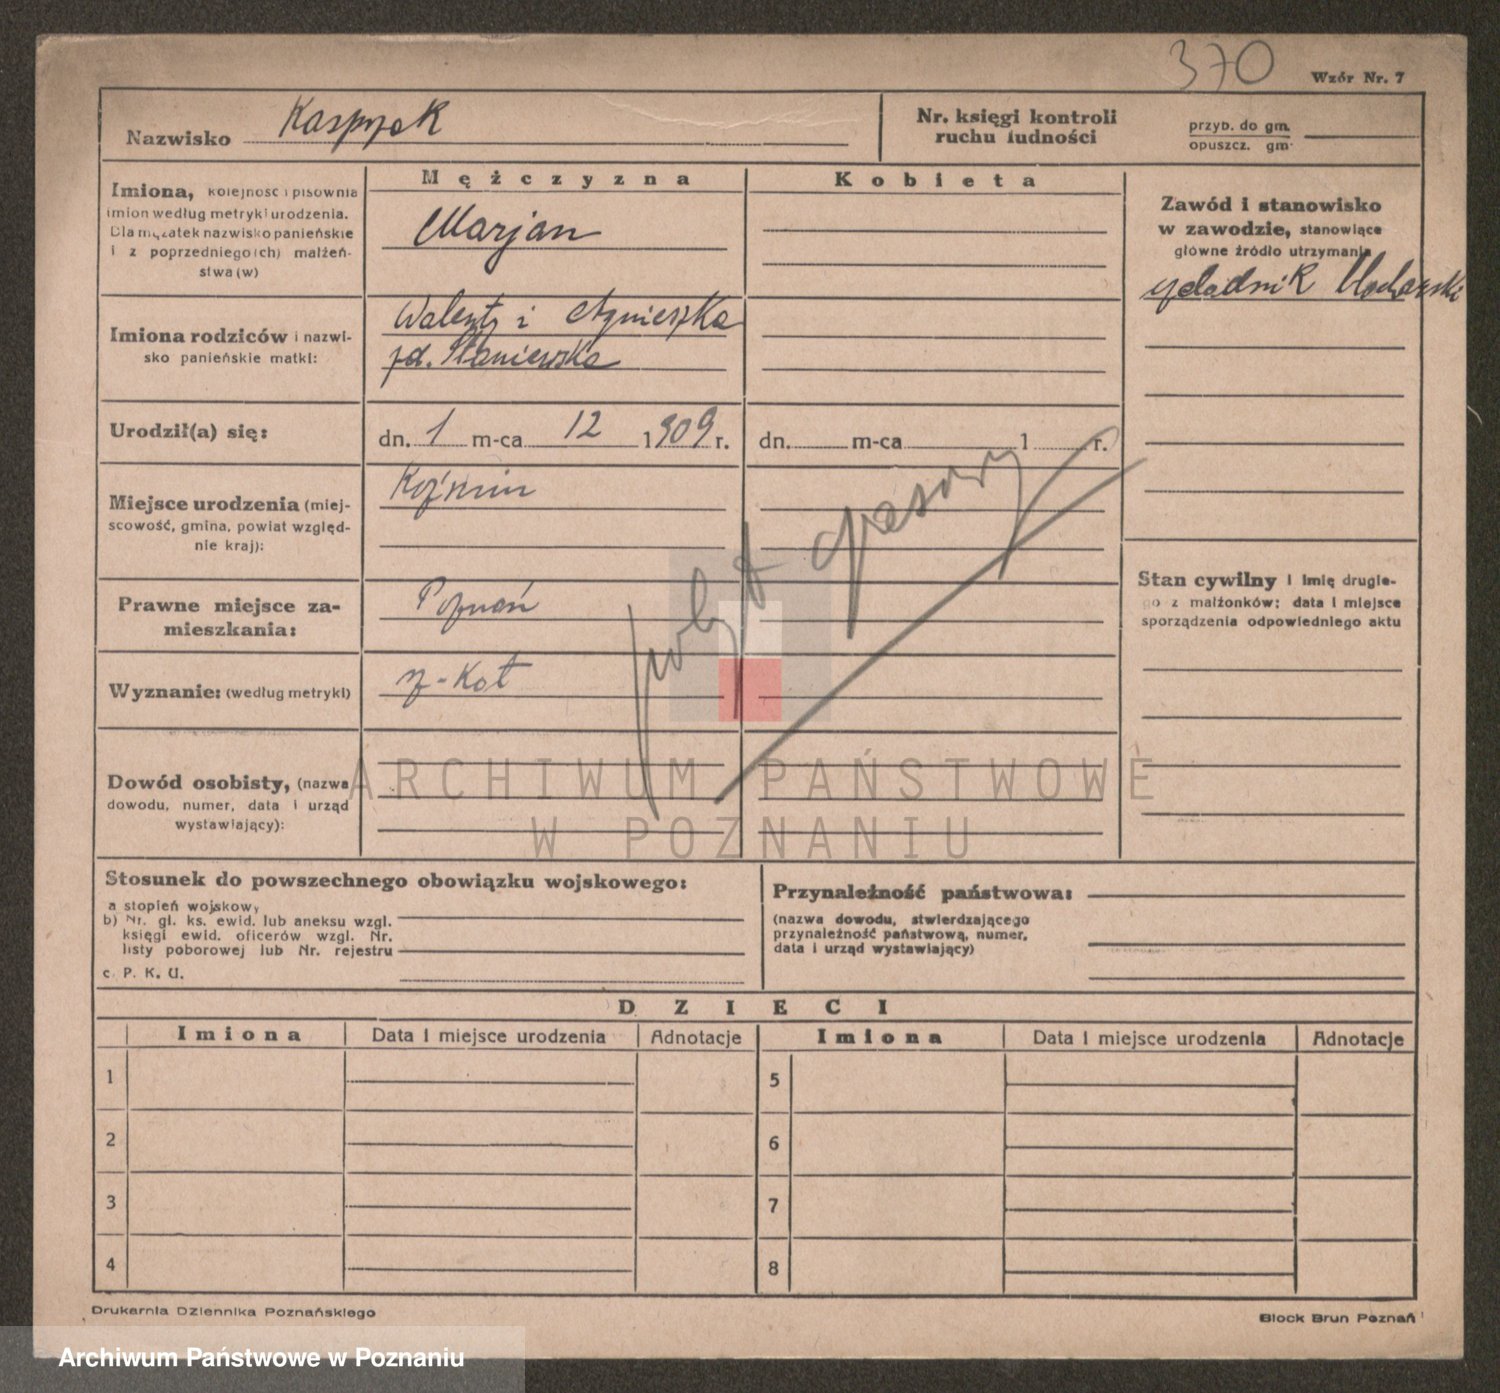 370
Wzór Nr. 7
Nazwisko Kasprzak
Nr. księgi kontroli
ruchu ludności
przyb. do gm.
opuszcz. gm.
Imiona, kolejność i pisownia
imion według metryki urodzenia.
Dla mężatek nazwisko panieńskie
i z poprzedniego(ich) małżeń-
stwa(w)
Mężczyzna
Marjan
Kobieta
Zawód i stanowisko
w zawodzie, stanowiące
główne źródło utrzymania
czeladnik blacharski
Imiona rodziców i nazwi-
sko panieńskie matki:
Walenty i Agnieszka
zd. Staniewska
Urodził(a) się:
dn. 1 m-ca 12 1909 r.
dn. m-ca 1 r.
Miejsce urodzenia (miej-
scowość, gmina, powiat względ-
nie kraj):
Koźmin
pobyt czasowy
Prawne miejsce za-
mieszkania:
Poznań
Stan cywilny i imię drugie-
go z małżonków; data i miejsce
sporządzenia odpowiedniego aktu
Wyznanie: (według metryki)
rz-kat
Dowód osobisty, (nazwa
dowodu, numer, data i urząd
wystawiający):
ARCHIWUM PAŃSTWOWE
W POZNANIU
Stosunek do powszechnego obowiązku wojskowego:
a stopień wojskowy
b) Nr. gl. ks. ewid. lub aneksu wzgl.
księgi ewid. oficerów wzgl. Nr.
listy poborowej lub Nr. rejestru
c. P. K. U.
Przynależność państwowa:
(nazwa dowodu, stwierdzającego
przynależność państwową, numer,
data i urząd wystawiający)
DZIECI
Imiona Data i miejsce urodzenia Adnotacje Imiona Data i miejsce urodzenia Adnotacje
1 5
2 6
3 7
4 8
Drukarnia Dziennika Poznańskiego
Block Brun Poznań
Archiwum Państwowe w Poznaniu